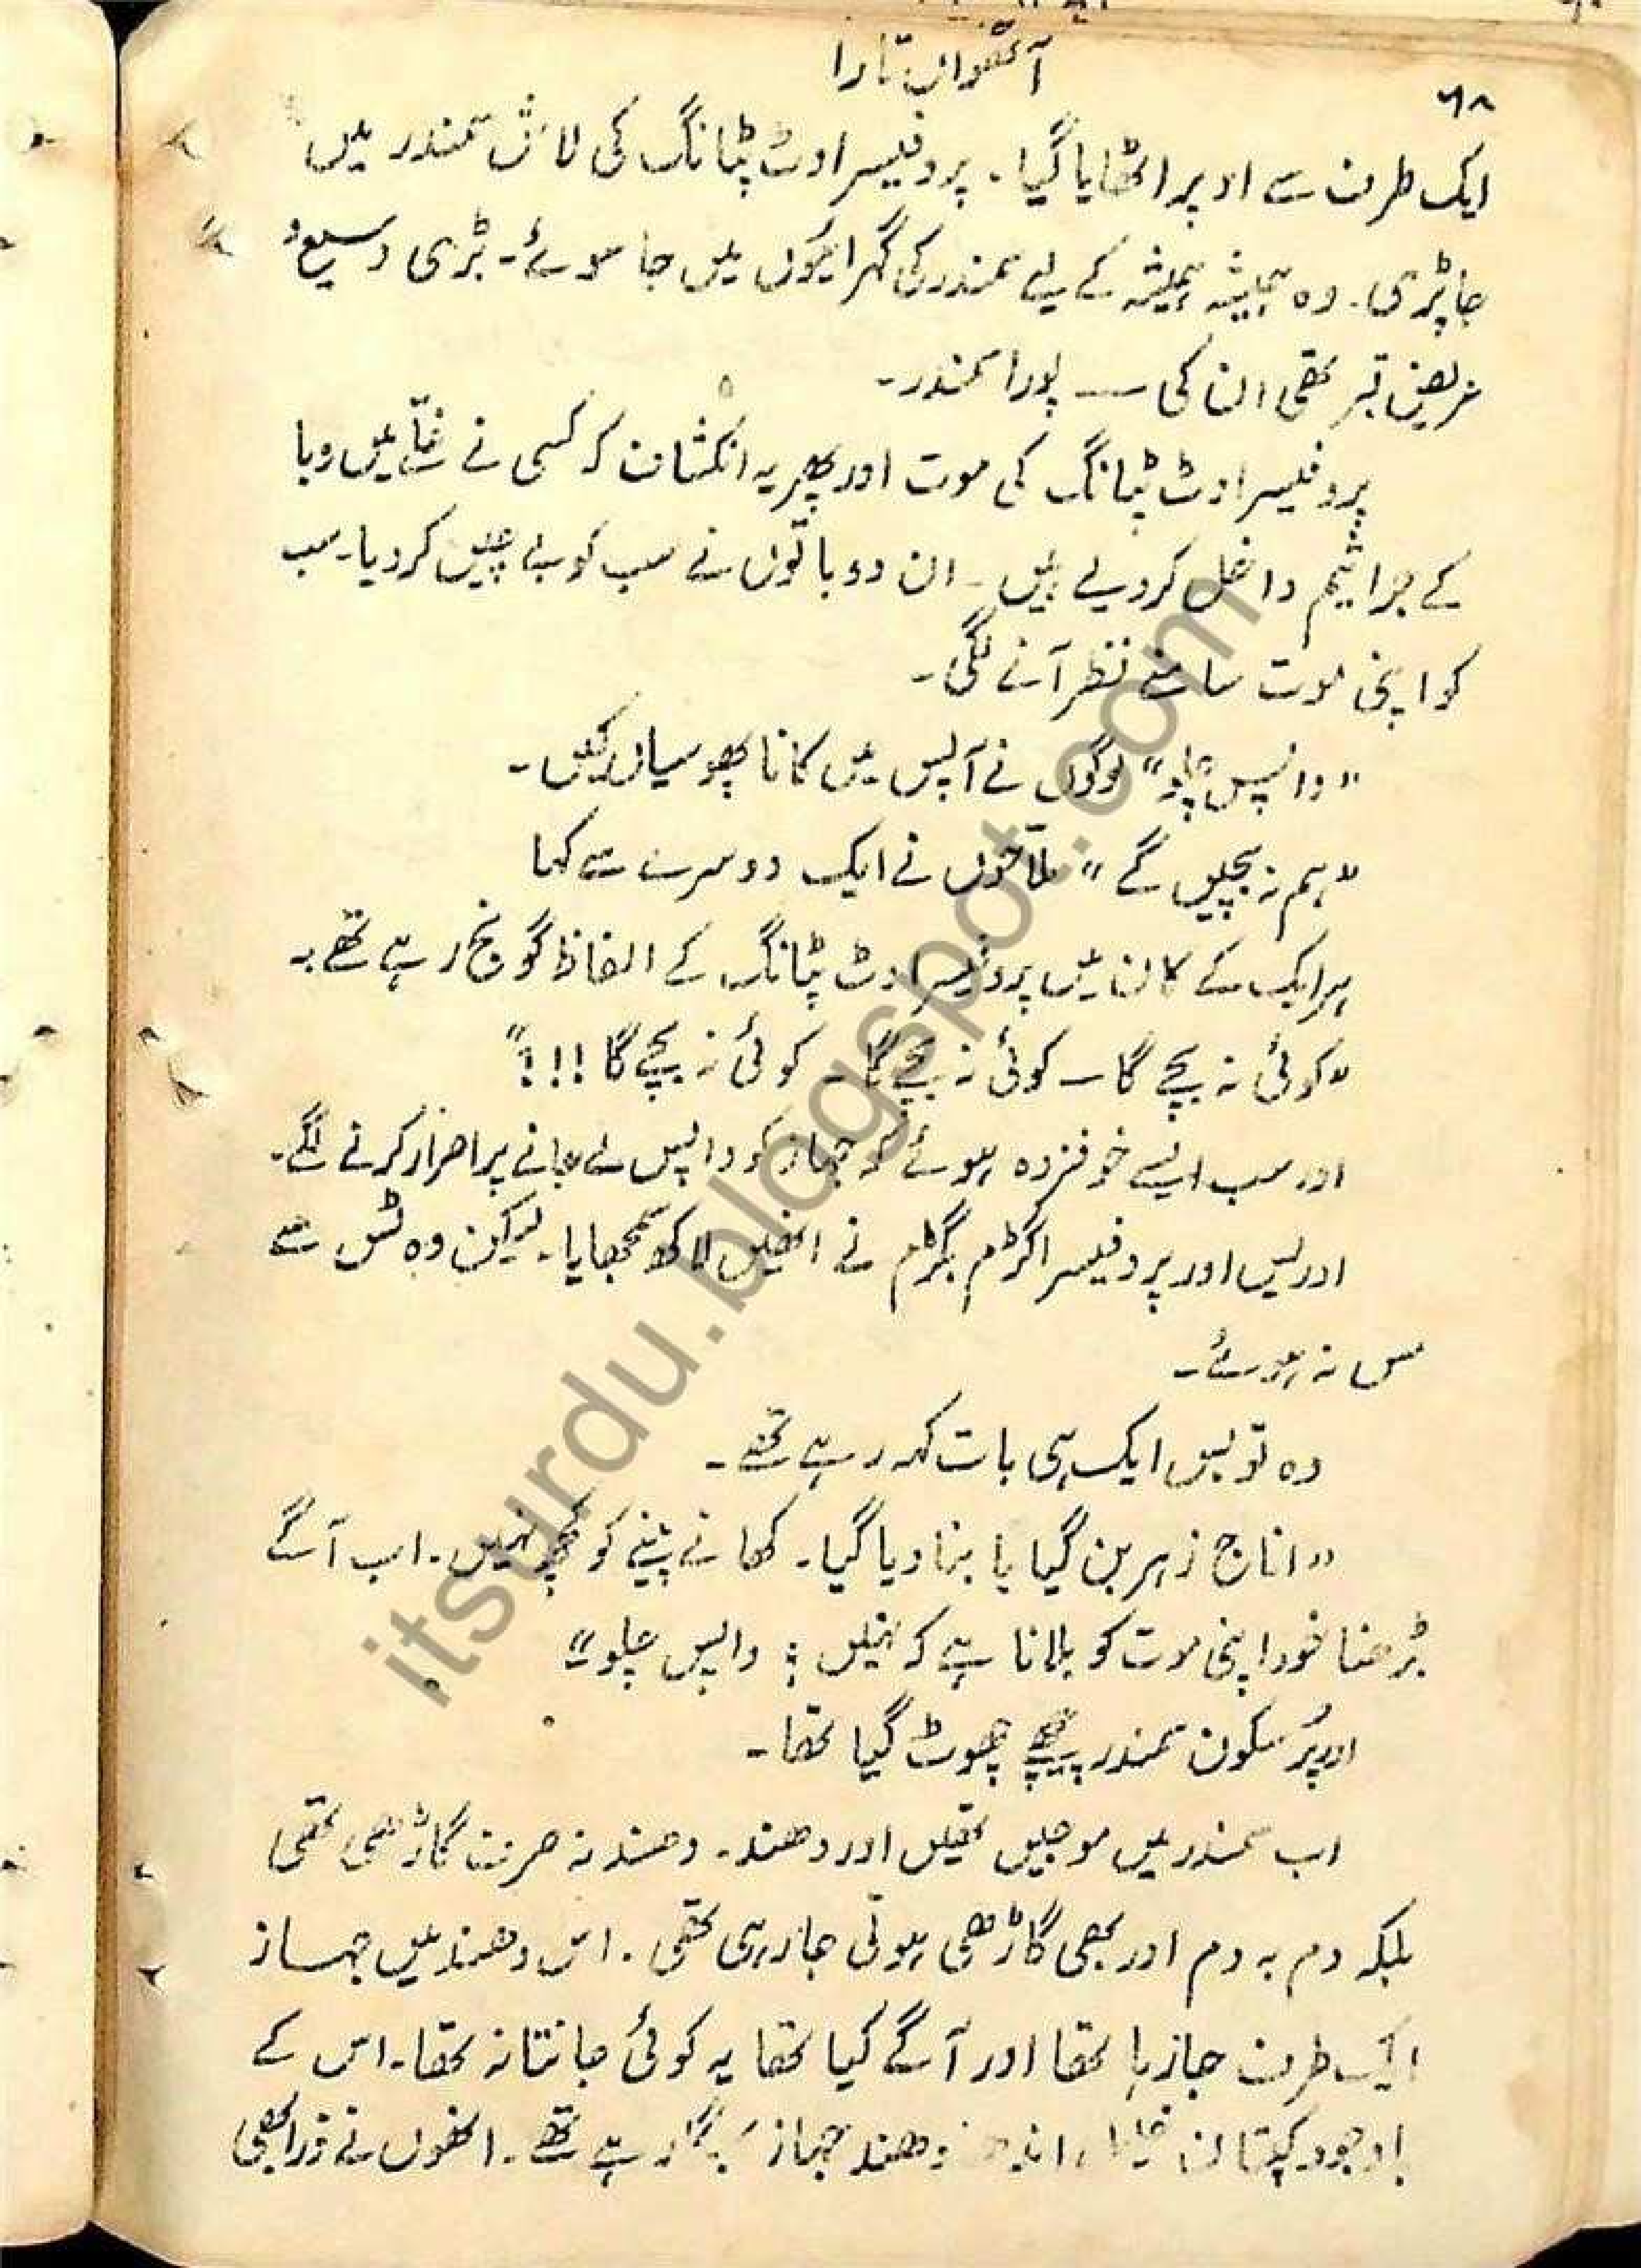 آٹھواں تارا
۶۸
ایک طرف سے اوپر اٹھایا گیا۔ پروفیسر اوٹ پٹانگ کی لاش سمندر میں
جا پڑی۔ وہ ہمیشہ ہمیشہ کے لیے سمندر کی گہرائیوں میں جا سوئے۔ بڑی وسیع و
عریض قبر تھی ان کی — پورا سمندر۔
پروفیسر اوٹ پٹانگ کی موت اور پھر یہ انکشاف کہ کسی نے غلّے میں وبا
کے جراثیم داخل کر دیے ہیں۔ ان دو باتوں نے سب کو بے چین کر دیا۔ سب
کو اپنی موت سامنے نظر آنے لگی۔
"واپس چلو" لوگوں نے آپس میں کانا پھوسیاں کیں۔
"ہم نہ بچیں گے" ملاّحوں نے ایک دوسرے سے کہا
ہر ایک کے کان میں پروفیسر اوٹ پٹانگ کے الفاظ گونج رہے تھے ۔
"کوئی نہ بچے گا — کوئی نہ بچے گا — کوئی نہ بچے گا !!!"
اور سب ایسے خوفزدہ ہوئے کہ جہاز کو واپس لے جانے پر اصرار کرنے لگے۔
ادریس اور پروفیسر اگڑم بگڑم نے انھیں لاکھ سمجھایا۔ لیکن وہ ٹس سے
مس نہ ہوئے۔
وہ تو بس ایک ہی بات کہہ رہے تھے۔
"اناج زہر بن گیا یا بنا دیا گیا۔ کھانے پینے کو کچھ نہیں۔ اب آگے
بڑھنا خود اپنی موت کو بلانا ہے کہ نہیں ؟ واپس چلو"
اور پُر سکون سمندر پیچھے چھوٹ گیا تھا۔
اب سمندر میں موجیں تھیں اور دھند۔ دھند نہ صرف گاڑھی تھی
بلکہ دم بہ دم اور بھی گاڑھی ہوتی جا رہی تھی۔ اس دھند میں جہاز
کس طرف جا رہا تھا اور آگے کیا تھا یہ کوئی جانتا نہ تھا۔ اس کے
باوجود کپتان دھند جہاز رہے تھے۔ انھوں نے ذرا بھی
itsurdu.blogspot.com